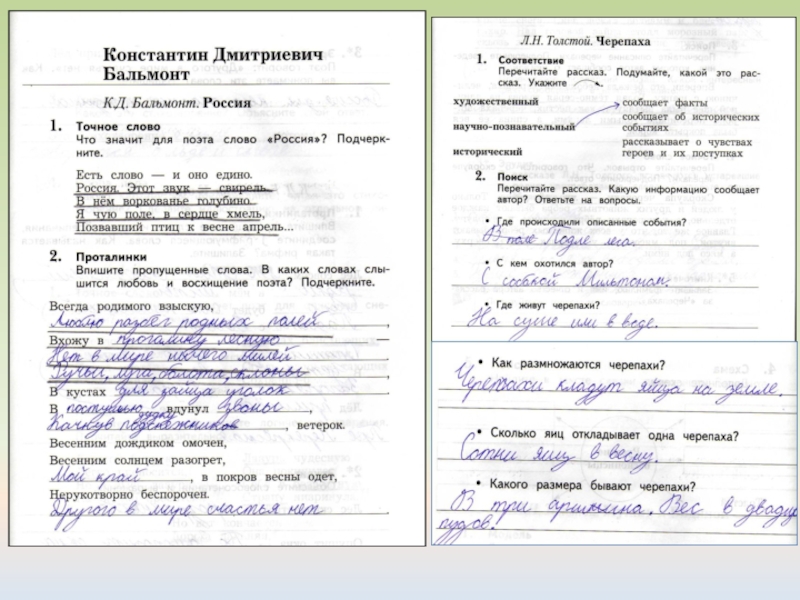 Константин Дмитриевич
Бальмонт
К.Д. Бальмонт. Россия
1. Точное слово
Что значит для поэта слово «Россия»? Подчерк-
ните.
Есть слово — и оно едино.
Россия. Этот звук — свирель.
В нём воркованье голубино.
Я чую поле, в сердце хмель,
Позвавший птиц к весне апрель...
2. Проталинки
Впишите пропущенные слова. В каких словах слы-
шится любовь и восхищение поэта? Подчеркните.
Всегда родимого взыскую,
Люблю разбег родных полей,
Вхожу в прогалину лесную —
Нет в мире ничего милей.
Ручьи, луга, болота, склоны,
В кустах для зайца уголок.
В пастушью дудку вдунул звоны,
Качнув подснежников, ветерок.
Весенним дождиком омочен,
Весенним солнцем разогрет,
Мой край, в покров весны одет,
Нерукотворно беспорочен.
Другого в мире счастья нет.
Л.Н. Толстой. Черепаха
1. Соответствие
Перечитайте рассказ. Подумайте, какой это рас-
сказ. Укажите
художественный сообщает факты
научно-познавательный сообщает об исторических
событиях
исторический рассказывает о чувствах
героев и их поступках
2. Поиск
Перечитайте рассказ. Какую информацию сообщает
автор? Ответьте на вопросы.
• Где происходили описанные события?
В поле Подле лега.
• С кем охотился автор?
С собкой Мильтоном.
• Где живут черепахи?
На суше или в воде.
• Как размножаются черепахи?
Черепахи кладут яйца на земле.
• Сколько яиц откладывает одна черепаха?
Сотни яиц в весну.
• Какого размера бывают черепахи?
В три аршина. Вес в двадц
пудов.